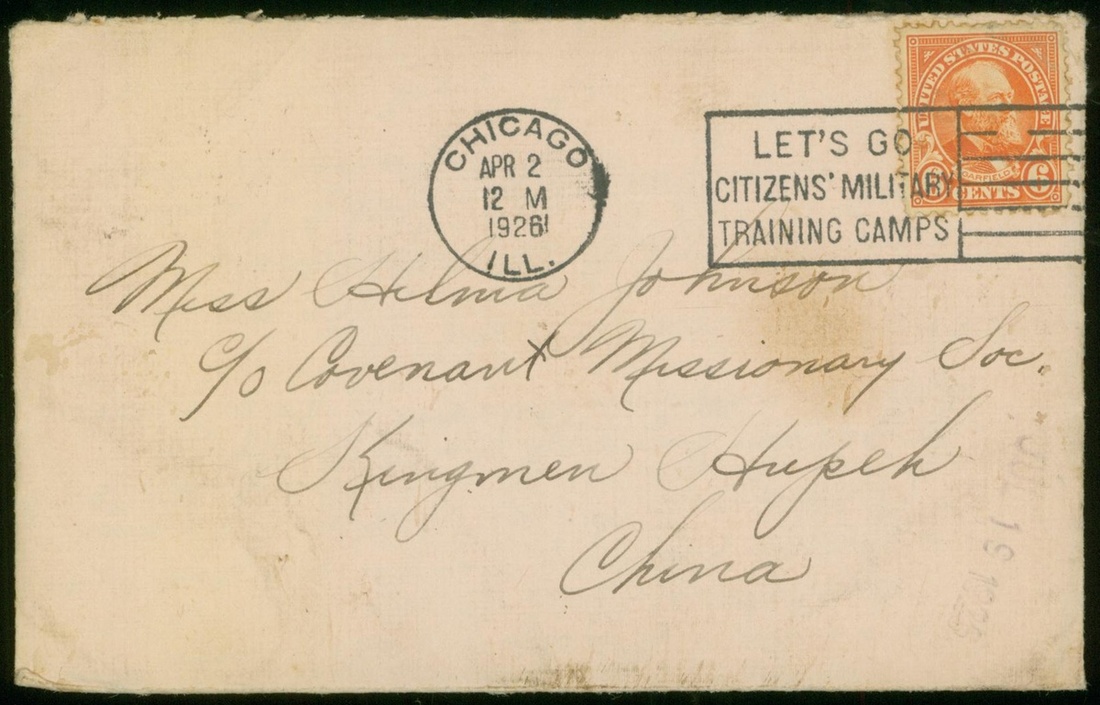 UNITED STATES POSTAGE
GARFIELD
6 CENTS 6
CHICAGO
APR 2
12 M
1926
ILL.
LET'S GO
CITIZENS' MILITARY
TRAINING CAMPS
Miss Helma Johnson
c/o Covenant Missionary Soc.
Kingmen Hupeh
China
19